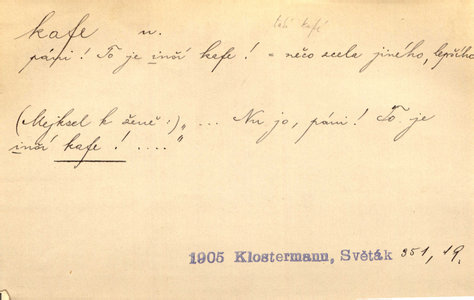 kafe n.
páni! To je inší kafe! = něco zcela jiného, lepšího
(Mejksel k ženě:) „ ... Nu jo, páni! To je
inší kafe! .... "
1905 Klostermann, Světák 351, 19.